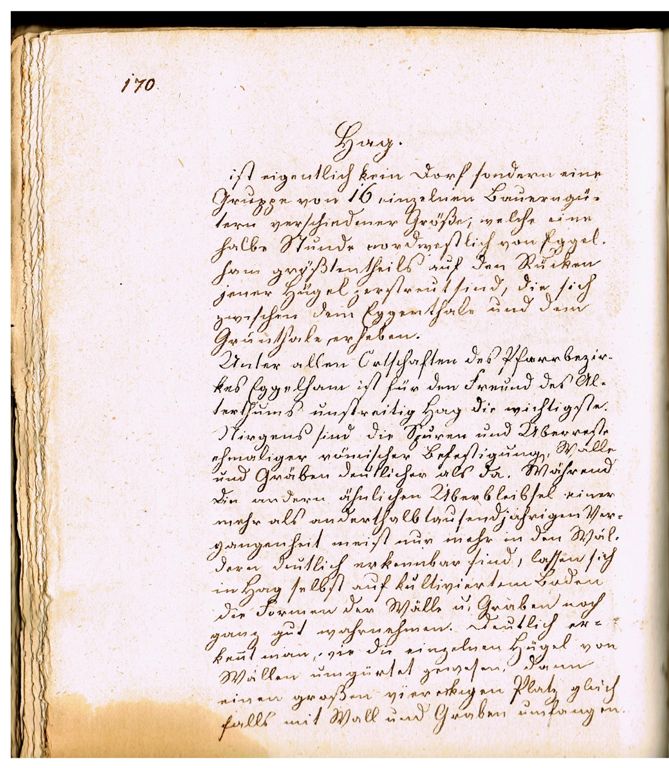 170
Hag.
ist eigentlich kein Dorf sondern eine
Gruppe von 16 einzelnen Bauerngü-
tern verschiedner Größe, welche eine
halbe Stunde nordwestlich von Eggel-
ham größtentheils auf den Rücken
jener Hügel zerstreut sind, die sich
zwischen dem Eggenthale und dem
Grünthale erheben.
Unter allen Ortschaften des Pfarrbezir-
kes Eggelham ist für den Freund des Al-
terthums unstreitig Hag die wichtigste.
Nirgens sind die Spuren und Überreste
ehmaliger römischer Befestigung, Wälle
und Gräben deutlicher als da. Während
die andern ähnlichen Überbleibsel einer
mehr als anderthalbtausendjährigen Ver-
gangenheit meist nur mehr in den Wäl-
dern deutlich erkennbar sind, lassen sich
in Hag selbst auf kultiviertem Boden
die Formen der Wälle u. Gräben noch
ganz gut wahrnehmen. Deutlich er-
kennt man, wie die einzelnen Hügel von
Wällen umgürtet gewesen, dann
einen großen viereckigen Platz gleich
falls mit Wall und Graben umfangen.